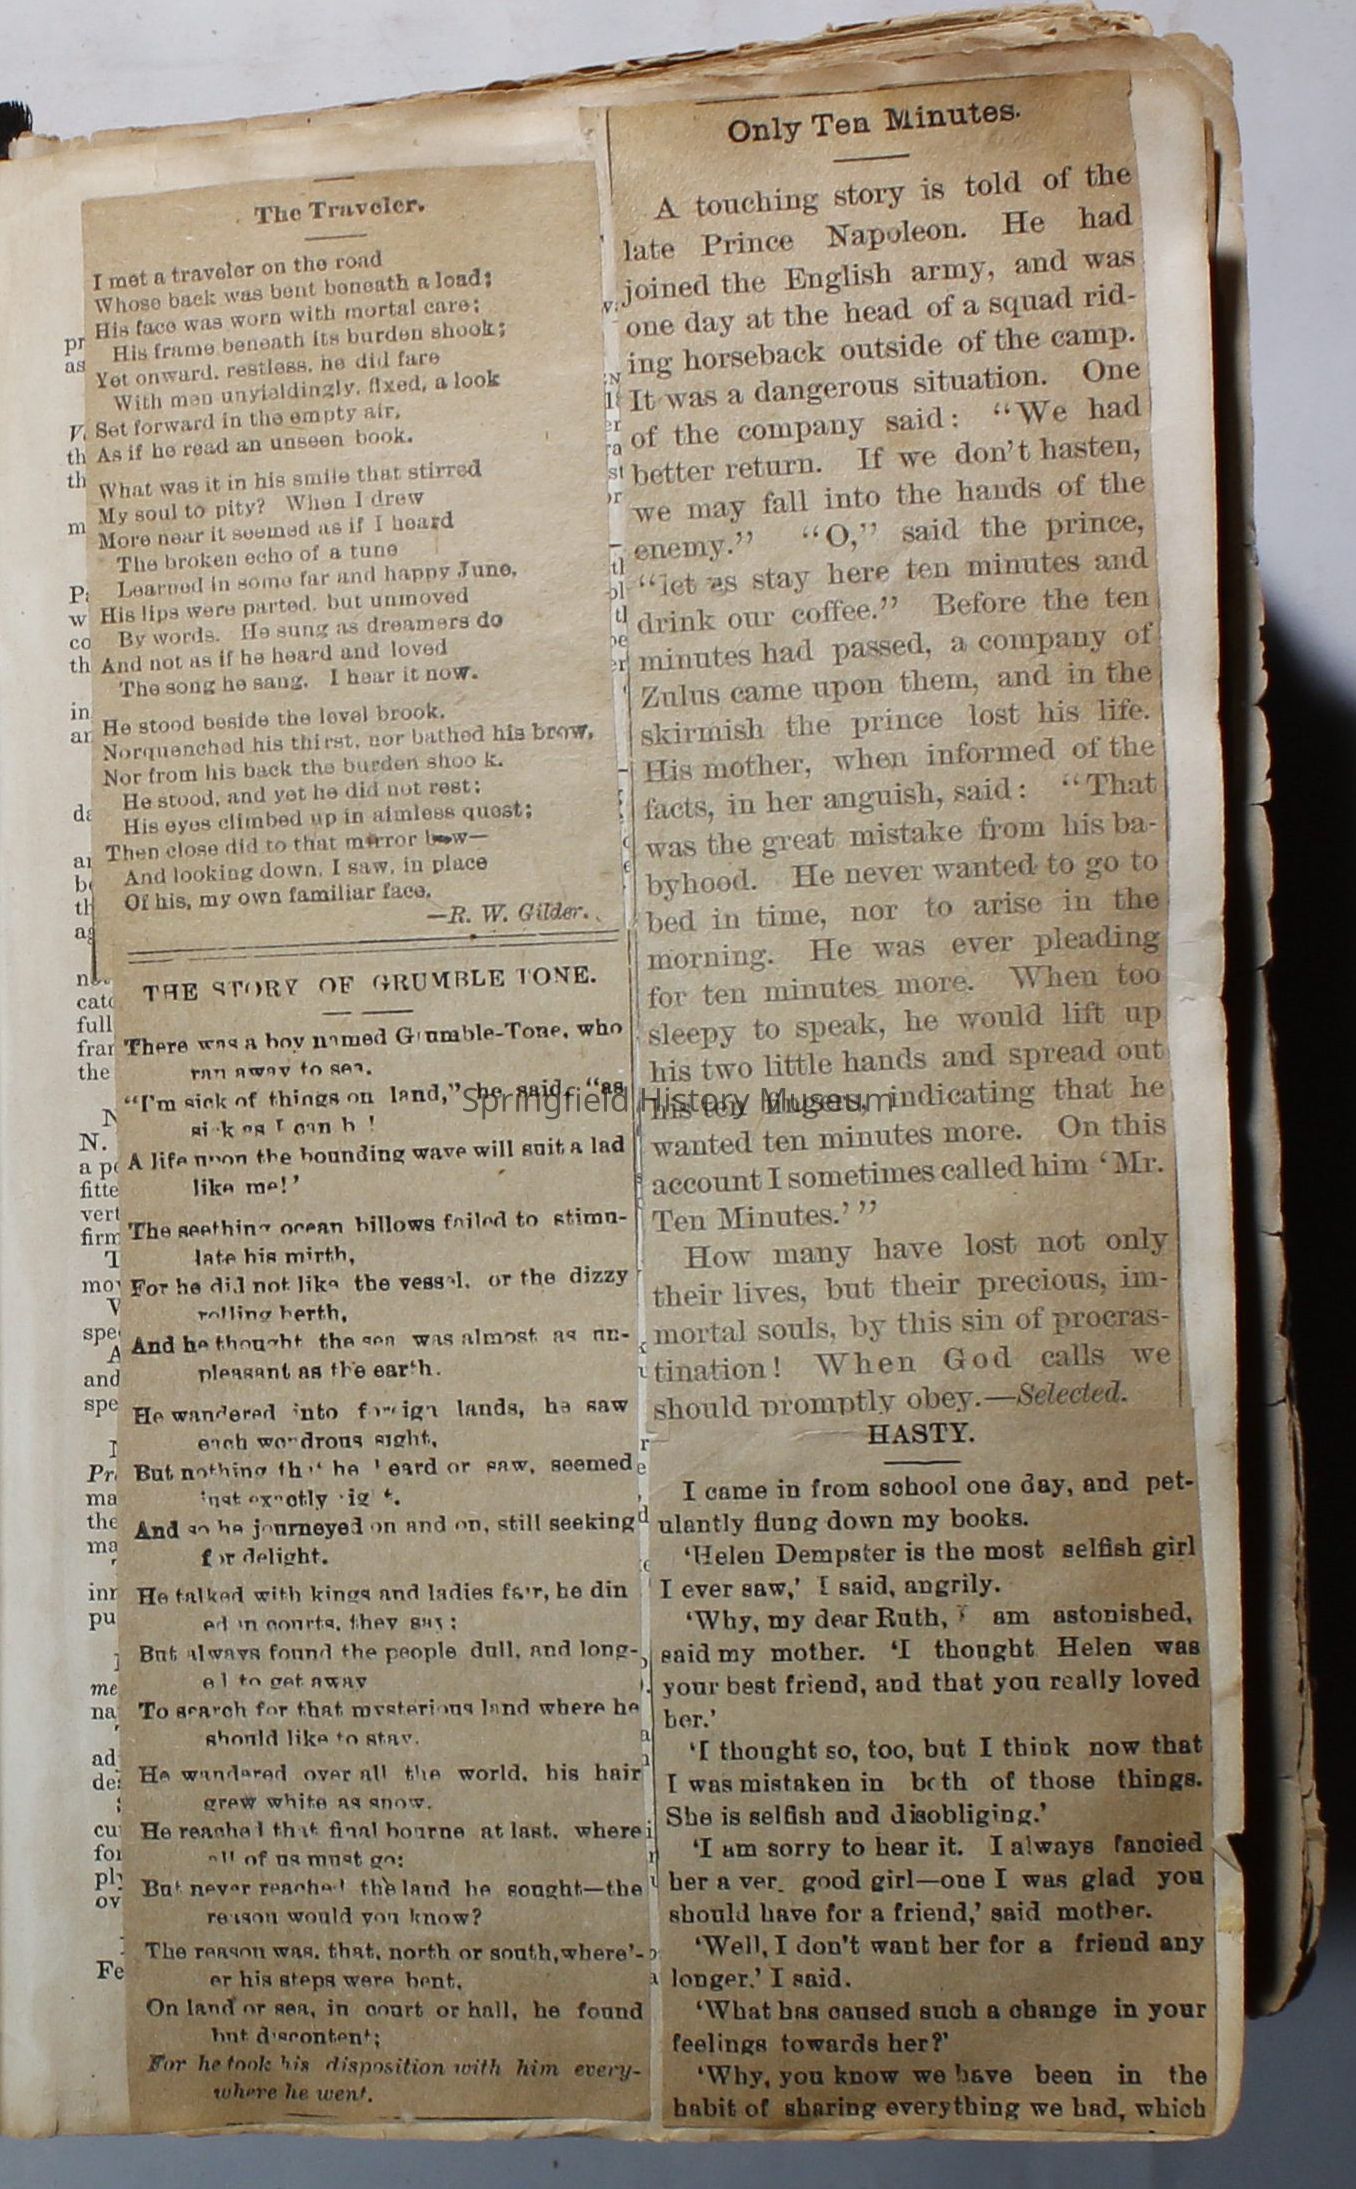 The Traveler.
I met a traveler on the road
Whose back was bent beneath a load;
His face was worn with mortal care;
His frame beneath its burden shook;
Yet onward, restless, he did fare
With men unyieldingly, fixed, a look
Set forward in the empty air,
As if he read an unseen book.
What was it in his smile that stirred
My soul to pity? When I drew
More near it seemed as if I heard
The broken echo of a tune
Learned in some far and happy June.
His lips were parted, but unmoved
By words. He sung as dreamers do
And not as if he heard and loved
The song he sang. I hear it now.
He stood beside the level brook.
Nor quenched his thirst, nor bathed his brow,
Nor from his back the burden shoo k.
He stood, and yet he did not rest;
His eyes climbed up in aimless quest;
Then close did to that mirror bow—
And looking down, I saw, in place
Of his, my own familiar face.
—R. W. Gilder.
THE STORY OF GRUMBLE TONE.
There was a boy named Grumble-Tone, who
ran away to sea.
"I'm sick of things on land," he said, "as
sick as I can b !
A life upon the bounding wave will suit a lad
like me!'
The seething ocean billows failed to stimu-
late his mirth,
For he did not like the vessel, or the dizzy
rolling berth,
And he thought the sea was almost as un-
pleasant as the earth.
He wandered into foreign lands, he saw
each wondrous sight,
But nothing that he heard or saw, seemed
just exactly right.
And so he journeyed on and on, still seeking
for delight.
He talked with kings and ladies fair, he din
ed in courts, they say;
But always found the people dull, and long-
ed to get away
To search for that mysterious land where he
should like to stay.
He wandered over all the world, his hair
grew white as snow.
He reached that final bourne at last, where
all of us must go;
But never reached the land he sought—the
reason would you know?
The reason was, that, north or south, where'-
er his steps were bent,
On land or sea, in court or hall, he found
but discontent;
For he took his disposition with him every-
where he went.
Only Ten Minutes.
A touching story is told of the
late Prince Napoleon. He had
joined the English army, and was
one day at the head of a squad rid-
ing horseback outside of the camp.
It was a dangerous situation. One
of the company said: "We had
better return. If we don't hasten,
we may fall into the hands of the
enemy." "O," said the prince,
"let us stay here ten minutes and
drink our coffee." Before the ten
minutes had passed, a company of
Zulus came upon them, and in the
skirmish the prince lost his life.
His mother, when informed of the
facts, in her anguish, said: "That
was the great mistake from his ba-
byhood. He never wanted to go to
bed in time, nor to arise in the
morning. He was ever pleading
for ten minutes more. When too
sleepy to speak, he would lift up
his two little hands and spread out
his ten fingers, indicating that he
wanted ten minutes more. On this
account I sometimes called him 'Mr.
Ten Minutes.'"
How many have lost not only
their lives, but their precious, im-
mortal souls, by this sin of procras-
tination! When God calls we
should promptly obey.—Selected.
HASTY.
I came in from school one day, and pet-
ulantly flung down my books.
'Helen Dempster is the most selfish girl
I ever saw,' I said, angrily.
'Why, my dear Ruth, I am astonished,
said my mother. 'I thought Helen was
your best friend, and that you really loved
her.'
'I thought so, too, but I think now that
I was mistaken in both of those things.
She is selfish and disobliging.'
'I am sorry to hear it. I always fancied
her a ver. good girl—one I was glad you
should have for a friend,' said mother.
'Well, I don't want her for a friend any
longer.' I said.
'What has caused such a change in your
feelings towards her?'
'Why, you know we have been in the
habit of sharing everything we had, which
Springfield History Museum